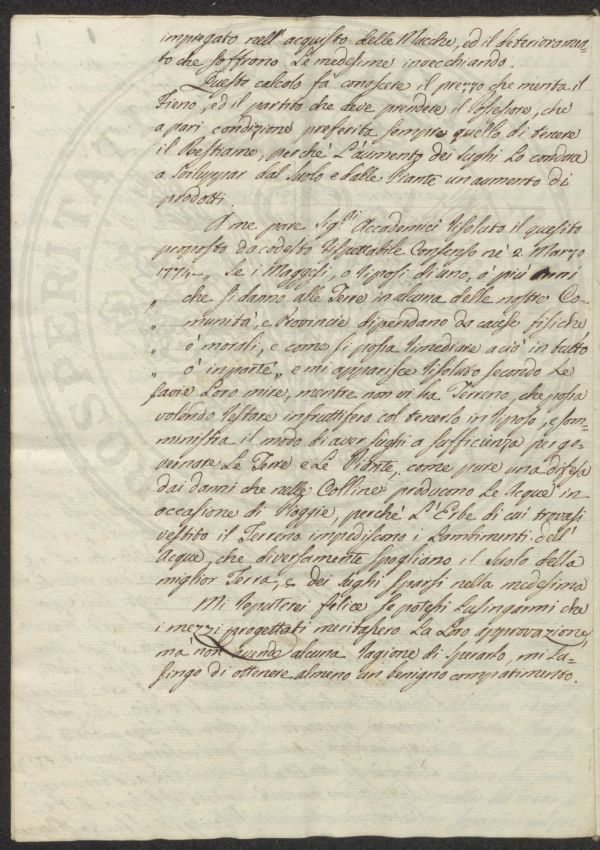 impiegato nell'acquisto delle Macche, ed il deterioramen=
to che soffrono Le medesime invecchiando.
Questo calcolo fà conoscere il prezzo che merita il
Fieno, ed il partito che deve prendere il Possessore, che
a pari condizione preferirà sempre quello di tenere
il Bestiame, perchè L'aumento dei sughi Lo conduce
a sviluppar dal suolo e dalle Piante un aumento di
prodotti.
A me pare Sig.ri Accademici risoluto il quesito
proposto da codesto rispettabile Consenso ne' 2. Marzo
1774 „ Se i Maggesi, o riposi di uno, o più anni
„ che si danno alle Terre in alcuna delle nostre Co=
„ munità, e Provincie dipendano da cause fisiche
„ o morali, e come si possa rimediare a ciò in tutto
„ o in parte „ e mi apparisce risoluto secondo Le
savie Loro mire, mentre non vi ha Terreno, che possa
volendo restare infruttifero col tenerlo in riposo, e som=
ministra il modo di aver sughi a sufficienza per go=
vernare Le Terre e Le Piante, come pure una difesa
dai danni che nelle Colline producono Le Acque in
occasione di Pioggie, perchè L'Erbe di cui trovasi
vestito il Terreno impediscono i Lambimenti dell'
Acqua, che diversamente spogliano il suolo della
miglior Terra, e dei sughi sparsi nella medesima
Mi reputerei felice se potessi Lusingarmi che
i mezzi progettati meritassero La Loro approvazione,
ma non avendo alcuna ragione di sperarlo, mi Lu=
singo di ottenere almeno un benigno compatimento.
PROSPERITATI